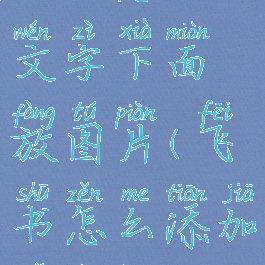 wén zì xià miàn
文字下面
fàng tú piàn fēi
放图片(飞
shū zěn me tiān jiā
书怎么添加